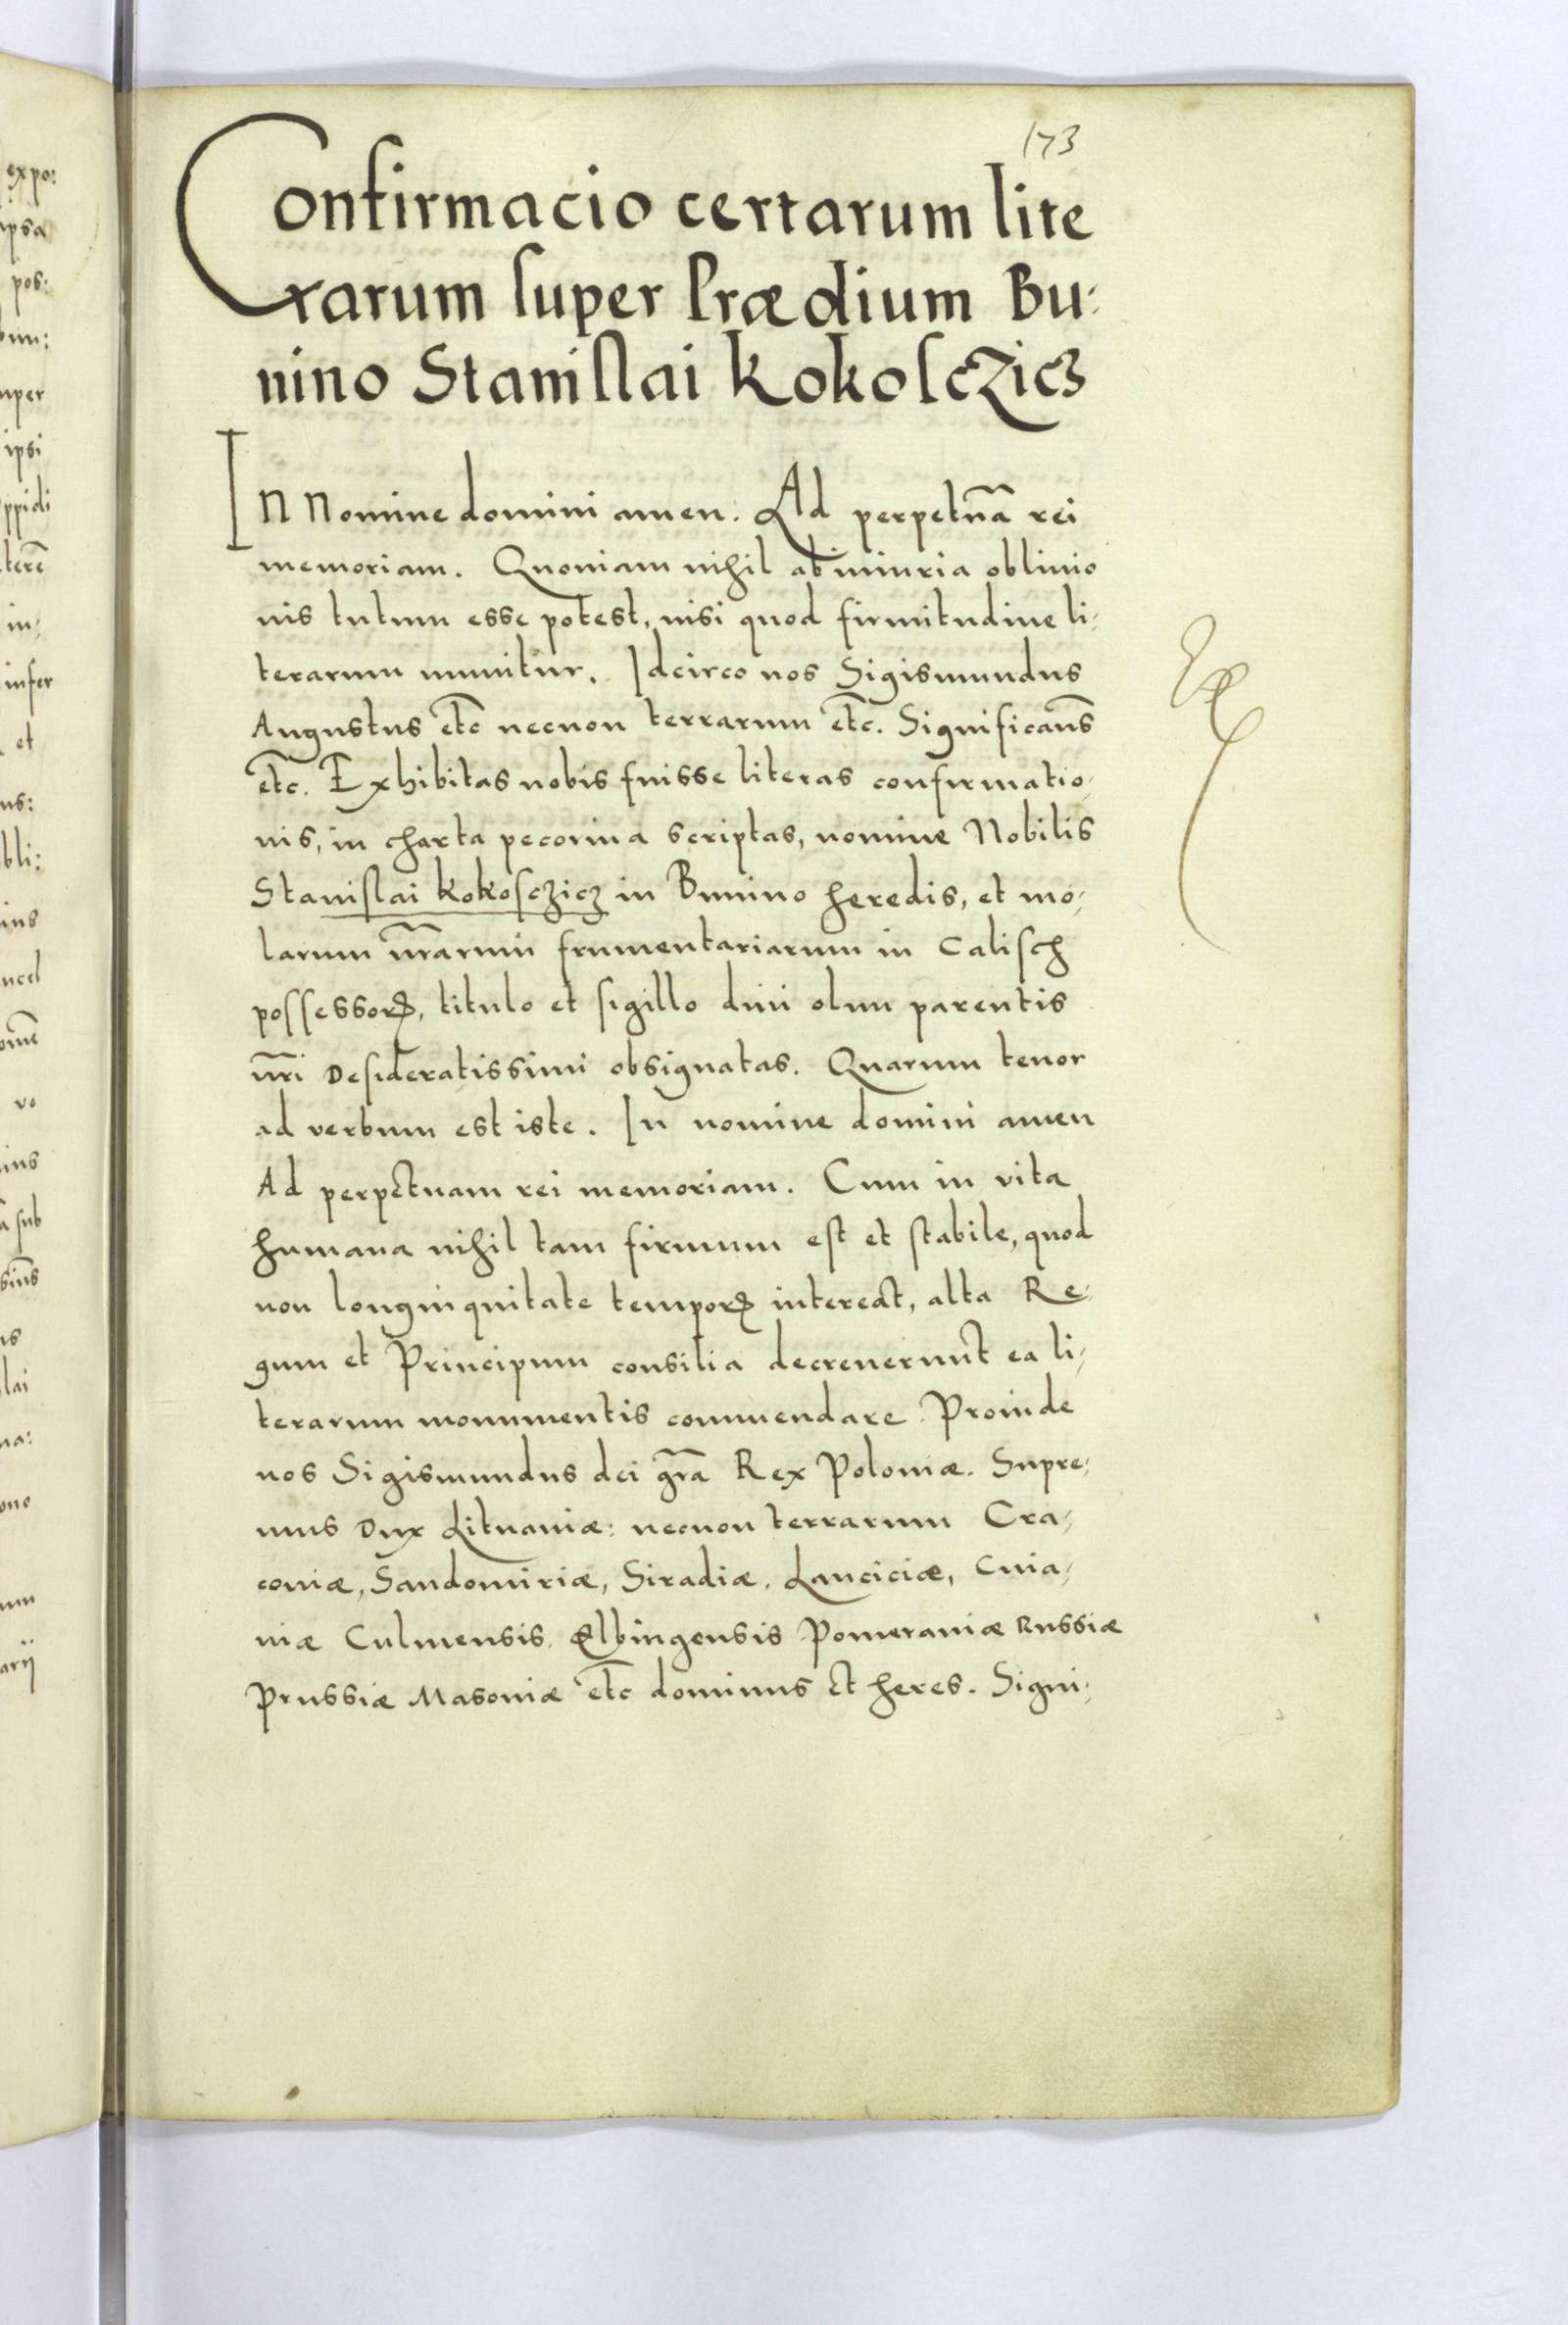 173
Confirmacio certarum lite
rarum super Prædium Bu:
nino Stanislai Kokosczicz
In Nomine domini amen. Ad perpetuā rei
memoriam. Quoniam nihil ab iniuria oblivio
nis tutum esse potest, nisi quod firmitudine li,
terarum munitur. Idcirco nos Sigismundus
Augustus etc necnon terrarum etc. Significans
etc. Exhibitas nobis fuisse literas confirmatio,
nis, in charta pecorina scriptas, nomine Nobilis
Stanislai Kokosczicz in Bunino heredis, et mo,
larum nr̄arum frumentariarum in Calisch
possessorꝭ, titulo et sigillo divi olim parentis
nr̄i Desideratissimi obsignatas. Quarum tenor
ad verbum est iste. In nomine domini amen
Ad perpetuam rei memoriam. Cum in vita
humana nihil tam firmum est et stabile, quod
non longinquitate temporꝭ intereat, alta Re,
gum et Principum consilia decreverunt ea li,
terarum monumentis commendare. Proinde
nos Sigismundus dei gr̄a Rex Poloniæ. Supre,
mus Dux Lituaniæ: necnon terrarum Cra,
coniæ, Sandomiriæ, Siradiæ. Lanciciæ, Cuia,
uiæ Culmensis. Elbingensis Pomeraniæ Russiæ
Prussiæ Masoniæ etc dominus et heres. Signi,
expo:
ipsa
pos:
nper
ipsi
ppidi
terē
in,
infer
et
us:
bli:
ius
ucel
vo
ius
sub
us
lai
na:
ono
um
arij